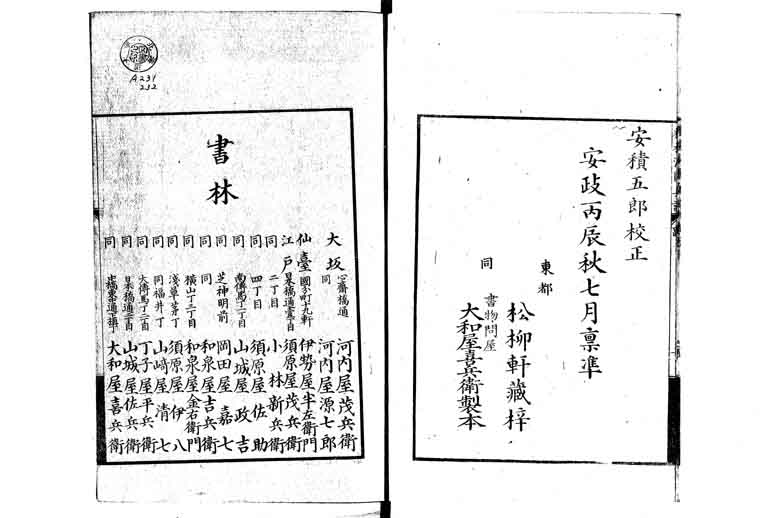 安積五郎校正
安政丙辰秋七月稟準
東都
松柳軒藏梓
同
書物問屋
大和屋喜兵衛製本
書林
大坂 心齋橋通 河内屋茂兵衛
同 河内屋源七郎
仙臺 國分町十九軒 伊勢屋半左衛門
江戸 日本橋通壹丁目 須原屋茂兵衛
同 二丁目 小林新兵衛
同 四丁目 須原屋佐助
同 南傳馬丁二丁目 山城屋政吉
同 芝神明前 岡田屋嘉七
同 同 和泉屋吉兵衛
同 横山丁三丁目 和泉屋金右衛門
同 淺草茅丁 須原屋伊八
同 同福井丁 山﨑屋清七
同 大傳馬丁二丁目 丁子屋平兵衛
同 日本橋通二丁目 山城屋佐兵衛
同 大和屋喜兵衛
A231
232